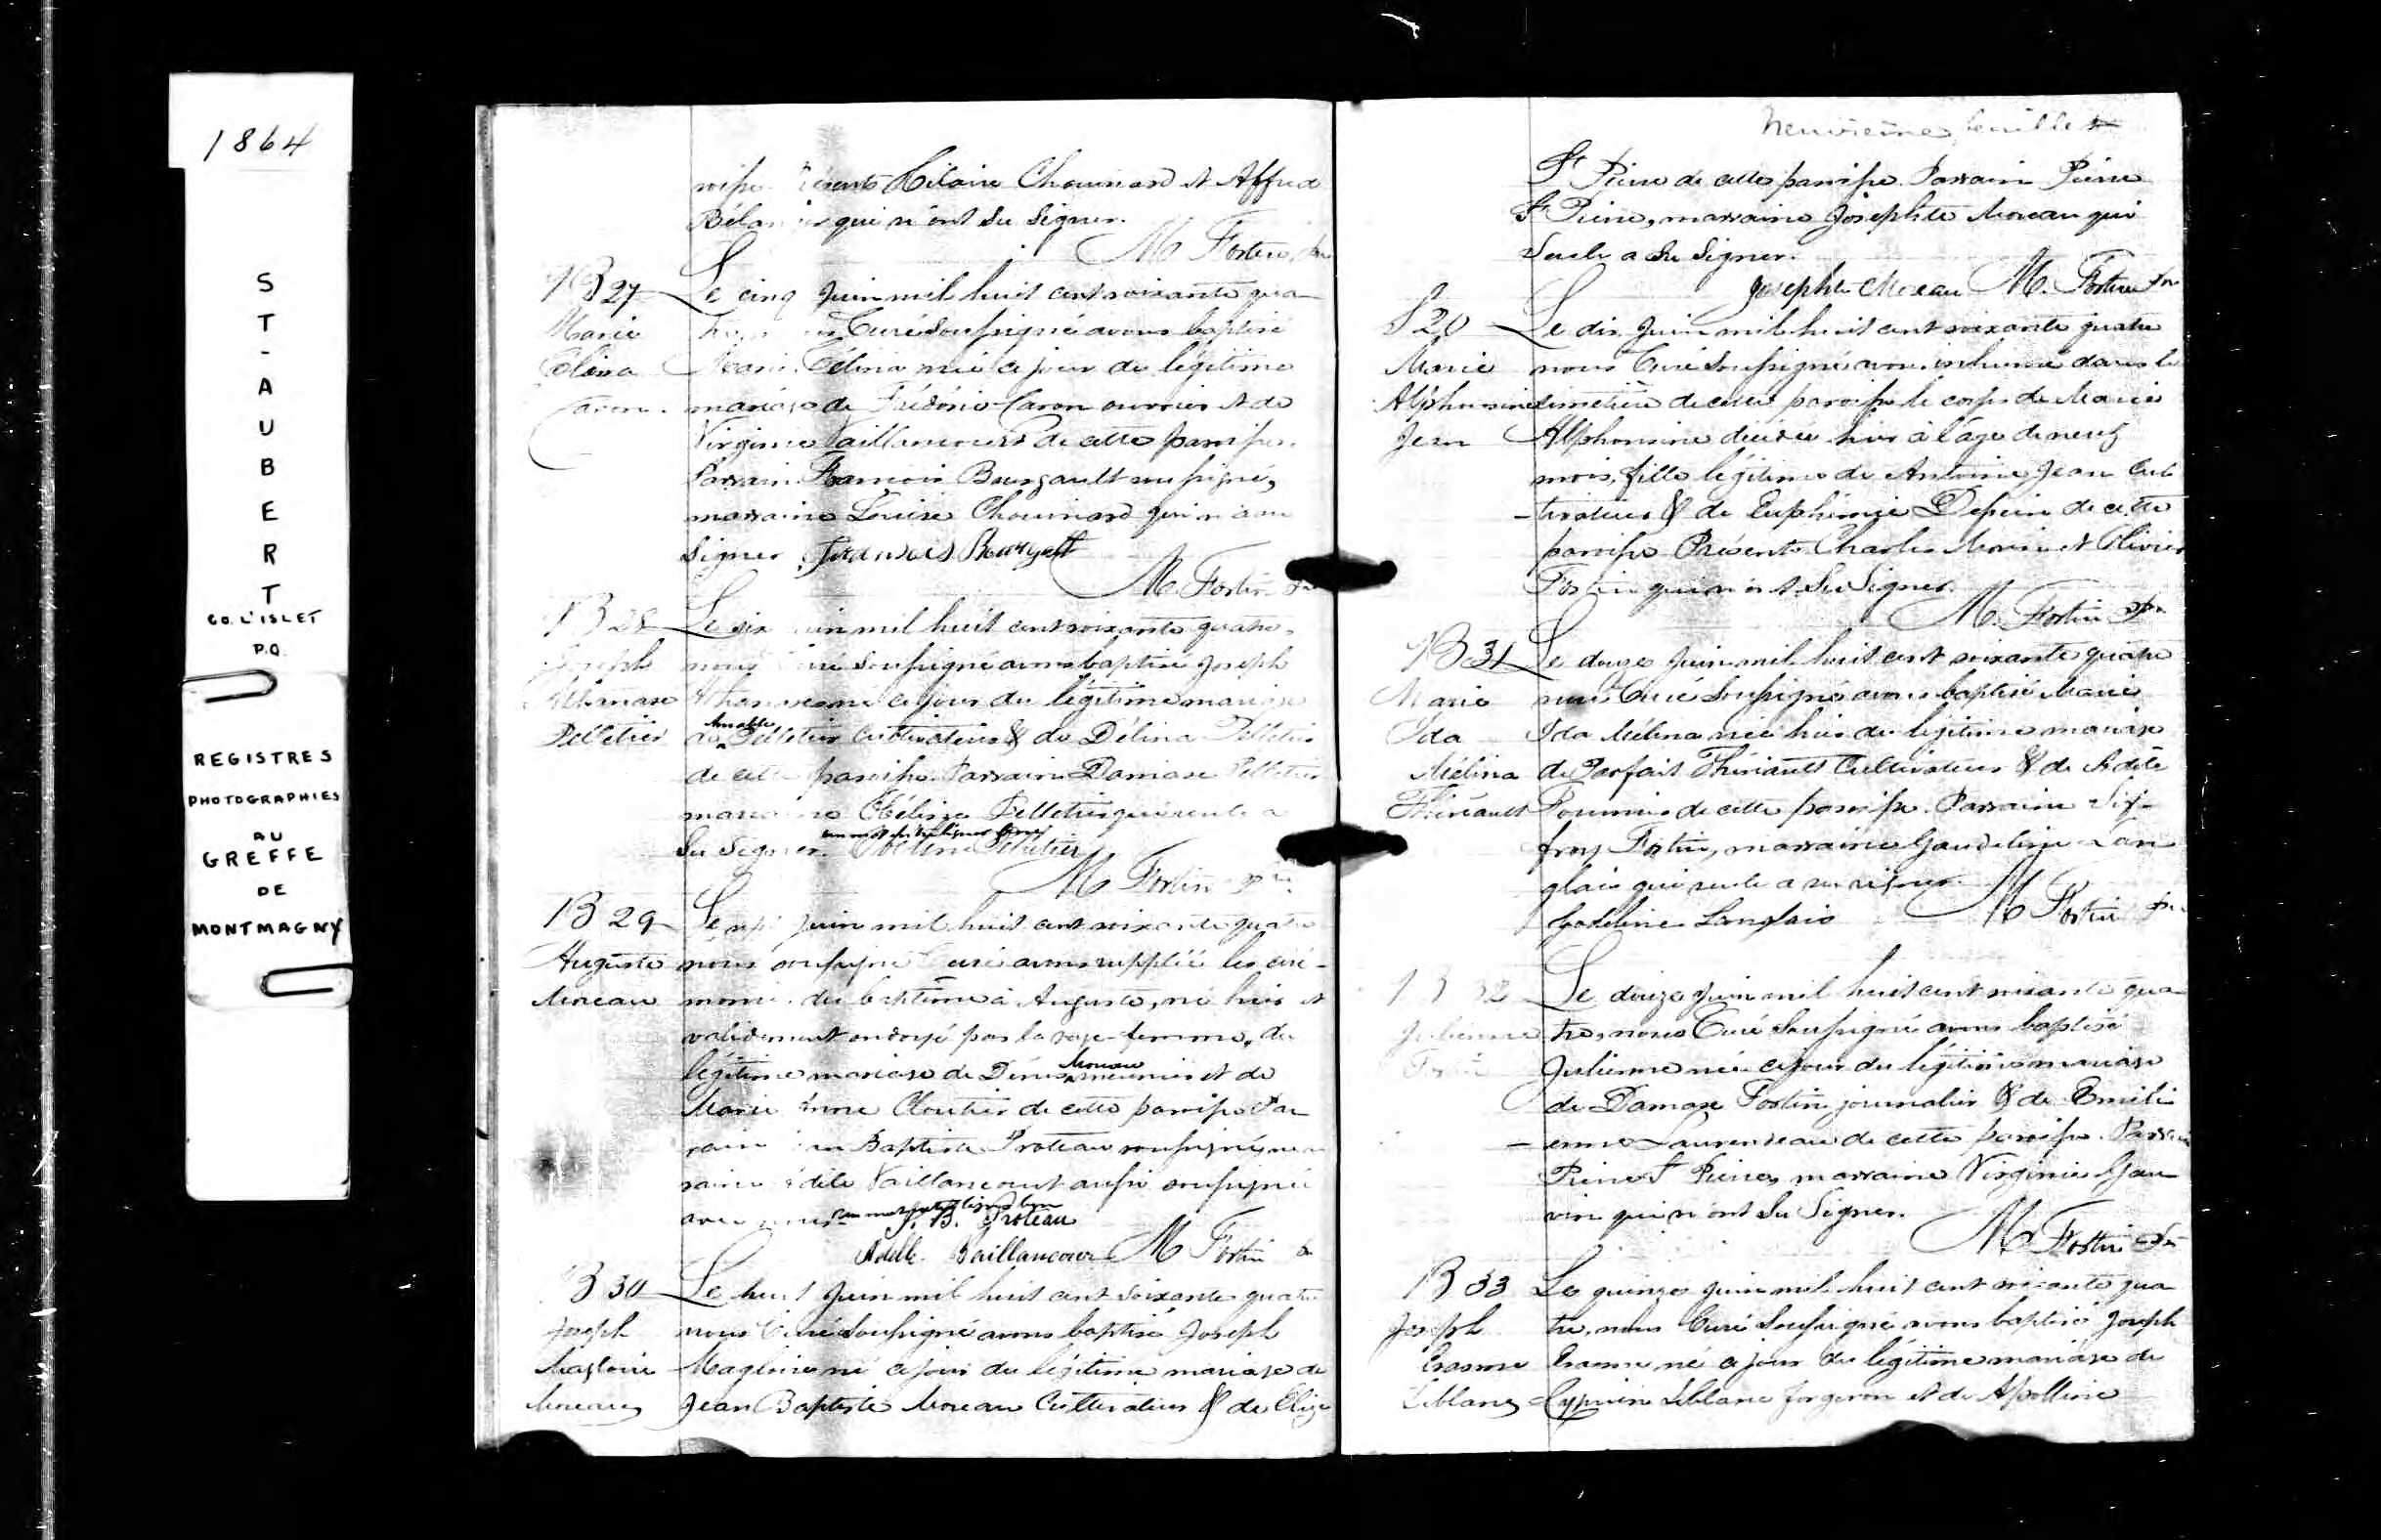 1864
ST-AUBERT
CO. L'ISLET
P.Q.
REGISTRES
PHOTOGRAPHIES
AU
GREFFE
DE
MONTMAGNY
Hilaire Chouinard et Alfred
qui n'ont su signer.
M Fortin
B 27
Marie
Célina
Le cinq juin mil huit cent soixante qua-
Curé soussigné avons baptisé
Célina née ce jour du légitime
mariage de Frédéric Caron ouvrier et de
Virginie Vaillancourt de cette paroisse.
Parrain François Bourgault soussigné,
marraine Louise Chouinard qui n'a su
signer. François Bourgault
M. Fortin
B 28
Joseph
Athanase
Pelletier
Le six juin mil huit cent soixante quatre,
nous Curé soussigné avons baptisé Joseph
Athanase né ce jour du légitime mariage
de Amable Pelletier Cultivateur & de Délina Pelletier
de cette paroisse. Parrain Damase Pelletier
marraine Obéline Pelletier qui seule a
su signer. un mot entre lignes bon
Obeline Pelletier
M Fortin ptre
B 29
Auguste
Moreau
Le juin mil huit cent soixante quatre
nous soussigné Curé avons suppléé les céré-
monies du baptême à Auguste, né hier et
validement ondoyé par la sage-femme, du
légitime mariage de Moreau meunier et de
Marie Anne Cloutier de cette paroisse Par
rain Jean Baptiste Proteau soussigné mar
raine Adèle Vaillancourt aussi soussignée
avec nous. un mot entre lignes bon
J. B. Proteau
Adelle Vaillancour M Fortin
B 30
Joseph
Magloire
Moreau
Le huit juin mil huit cent soixante quatre
nous Curé soussigné avons baptisé Joseph
Magloire né ce jour du légitime mariage de
Jean Baptiste Moreau Cultivateur & de Elize
Neuvième feuille
St Pierre de cette paroisse. Parrain Pierre
St Pierre, marraine Josephte Moreau qui
seule a su signer.
Josephte Moreau M. Fortin ptre
S 20
Marie
Alphonsine
Jean
Le dix juin mil huit cent soixante quatre
nous Curé soussigné avons inhumé dans le
cimetière de cette paroisse le corps de Marie
Alphonsine décédée hier à l'âge de neuf
mois, fille légitime de Antoine Jean Cul
-tivateur & de Euphémie de cette
paroisse Présents Charles Morin et Olivier
Fortin qui n'ont su signer.
M. Fortin ptre
B 31
Marie
Ida
Mélina
Thériault
Le douze juin mil huit cent soixante quatre
nous Curé soussigné avons baptisé Marie
Ida Mélina née hier du légitime mariage
de Parfait Thériault Cultivateur & de Adèle
Fournier de cette paroisse. Parrain Sif-
froy Fortin, marraine Gaudeline Lan
glais qui seule a su signer.
Godeline Langlais M Fortin ptre
B 32
Julienne
Fortin
Le douze juin mil huit cent soixante qua
tre, nous Curé soussigné avons baptisé
Julienne née ce jour du légitime mariage
de Damase Fortin journalier & de Emili
-enne Laurendeau de cette paroisse. Parrain
Pierre St Pierre, marraine Virginie Gau
vin qui n'ont su signer.
M. Fortin ptre
B 33
Joseph
Erasme
Leblanc
Le quinze juin mil huit cent soixante qua
tre, nous Curé soussigné avons baptisé Joseph
Erasme né ce jour du légitime mariage de
Cyprien Leblanc forgeron et de Apolline